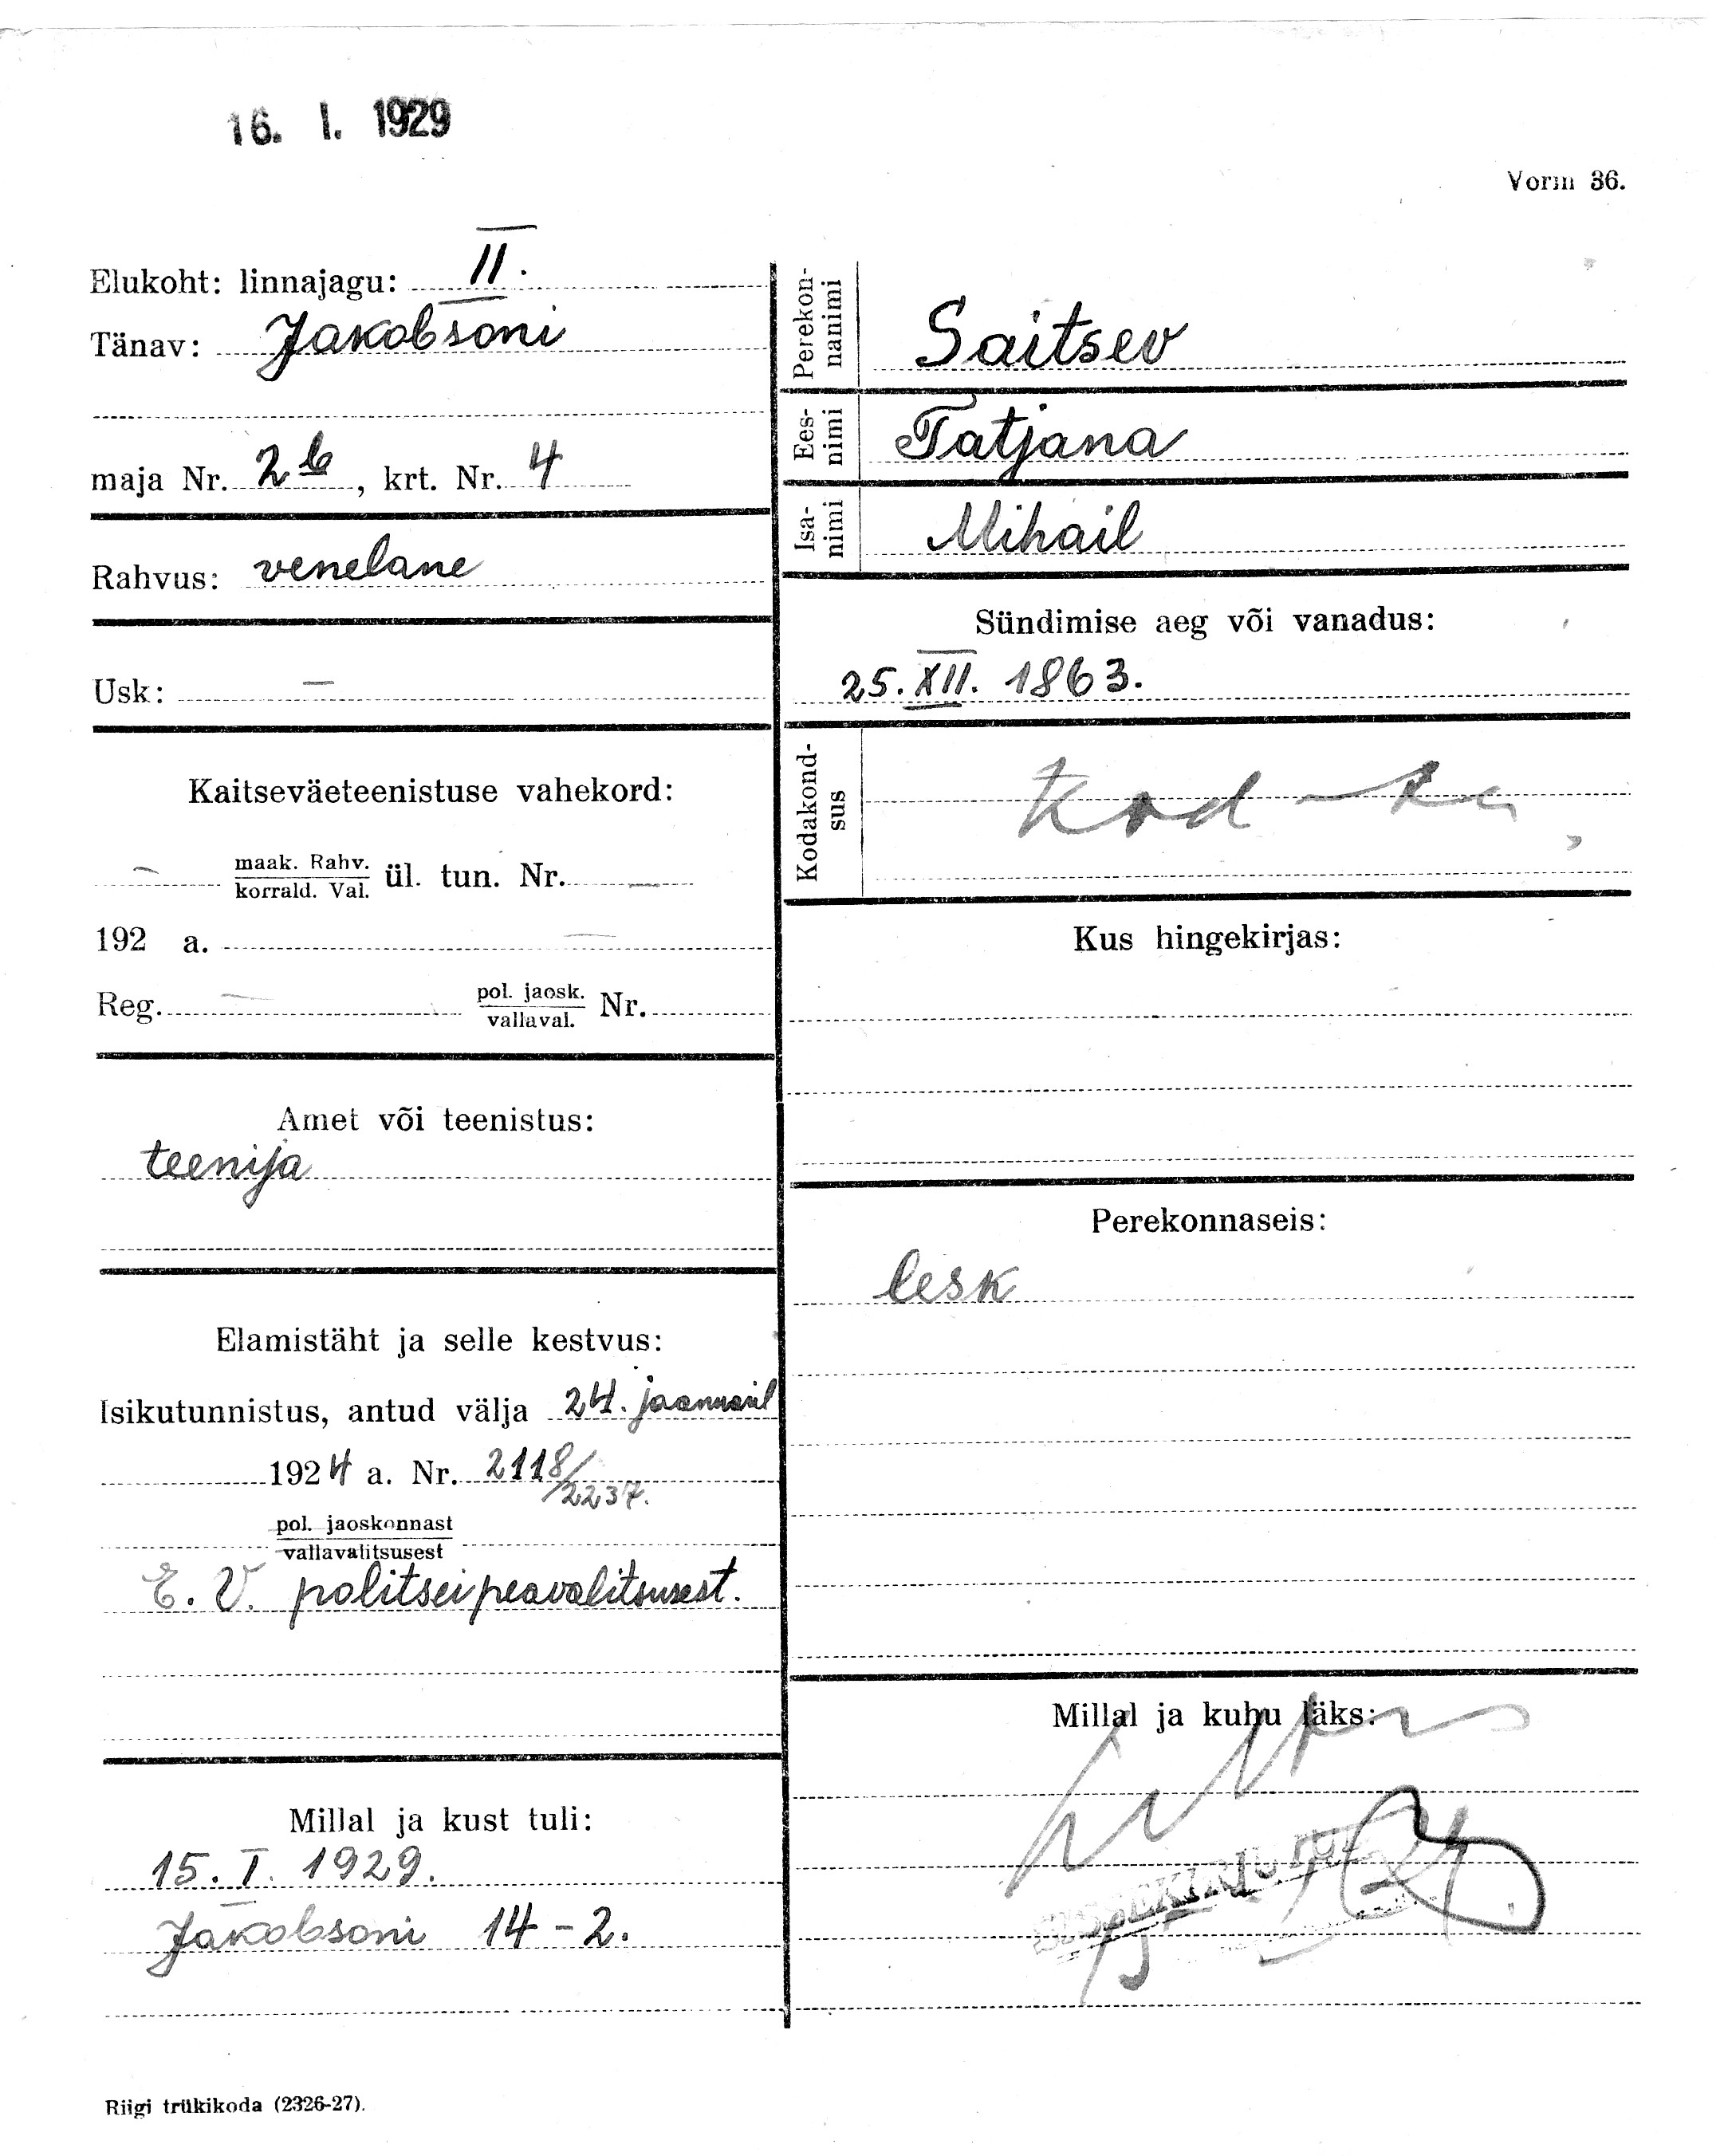 16. I. 1929
Vorm 36.
Elukoht: linnajagu: II.
Tänav: Jakobsoni
maja Nr. 2b, krt. Nr. 4
Rahvus: venelane
Usk: —
Kaitseväeteenistuse vahekord:
— maak. Rahv.
korrald. Val. ül. tun. Nr. —
192 a. —
Reg. — pol. jaosk.
vallaval. Nr.
Amet või teenistus:
teenija
Elamistäht ja selle kestvus:
Isikutunnistus, antud välja 24. jaanuaril
1924 a. Nr. 2118/2237.
pol. jaoskonnast
vallavalitsusest
E. V. politsei peavalitsusest.
Millal ja kust tuli:
15. I. 1929.
Jakobsoni 14 – 2.
Perekon-
nanimi
Saitsev
Ees-
nimi
Tatjana
Isa-
nimi
Mihail
Sündimise aeg või vanadus:
25. XII. 1863.
Kodakond-
sus
Kus hingekirjas:
Perekonnaseis:
lesk
Millal ja kuhu läks:
SISSEKIRJUTUD
Riigi trükikoda (2326-27).